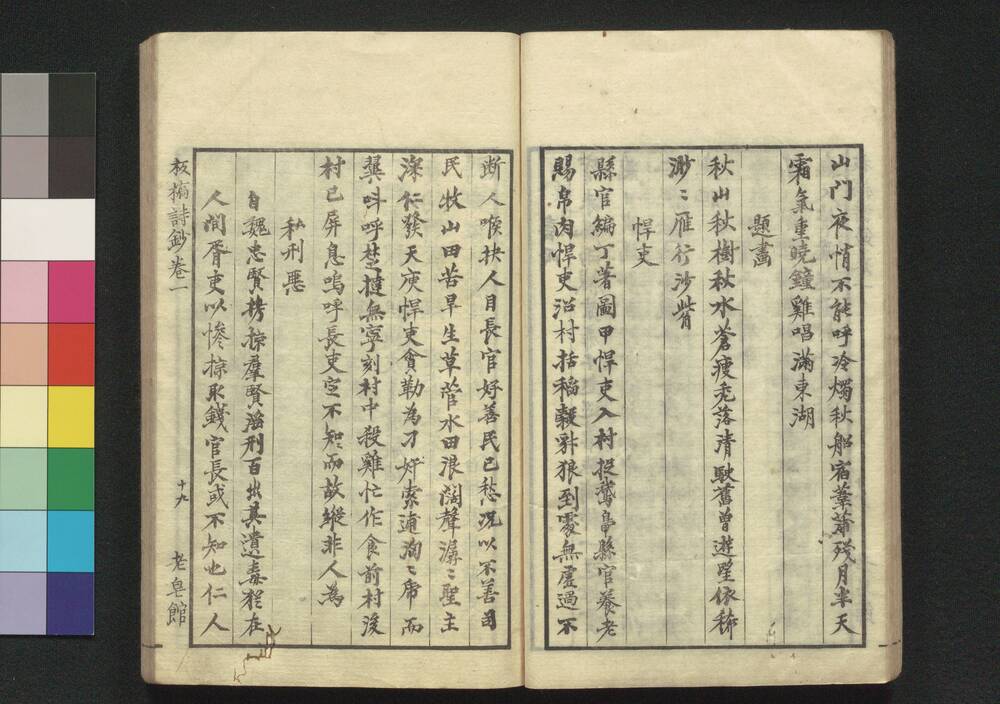 山門夜悄不能呼冷燭秋船宿葦蕭殘月半天
霜氣重曉鐘雞唱滿東湖
題畫
秋山秋樹秋水蒼瘦禿落清駛舊曾遊望依稀
渺〻雁行沙觜
悍吏
縣官編丁著圖甲悍吏入村捉鵞鴨縣官養老
賜帛肉悍吏沿村括稻穀豺狼到處無虛過不
断人喉抉人目長官好善民已愁況以不善司
民牧山田苦旱生草菅水田浪闊聲潺〻聖主
深仁發天庾悍吏貪勒為刁奸索逋洶〻虎而
龔叫呼楚撻無寧刻村中殺雞忙作食前村後
村已屏息嗚呼長吏定不知知而故縱非人為
私刑惡
自魏忠賢搒掠羣賢滛刑百出其遺毒猶在
人間胥吏以慘掠取錢官長或不知也仁人
板橋詩鈔卷一
十九
老皂館